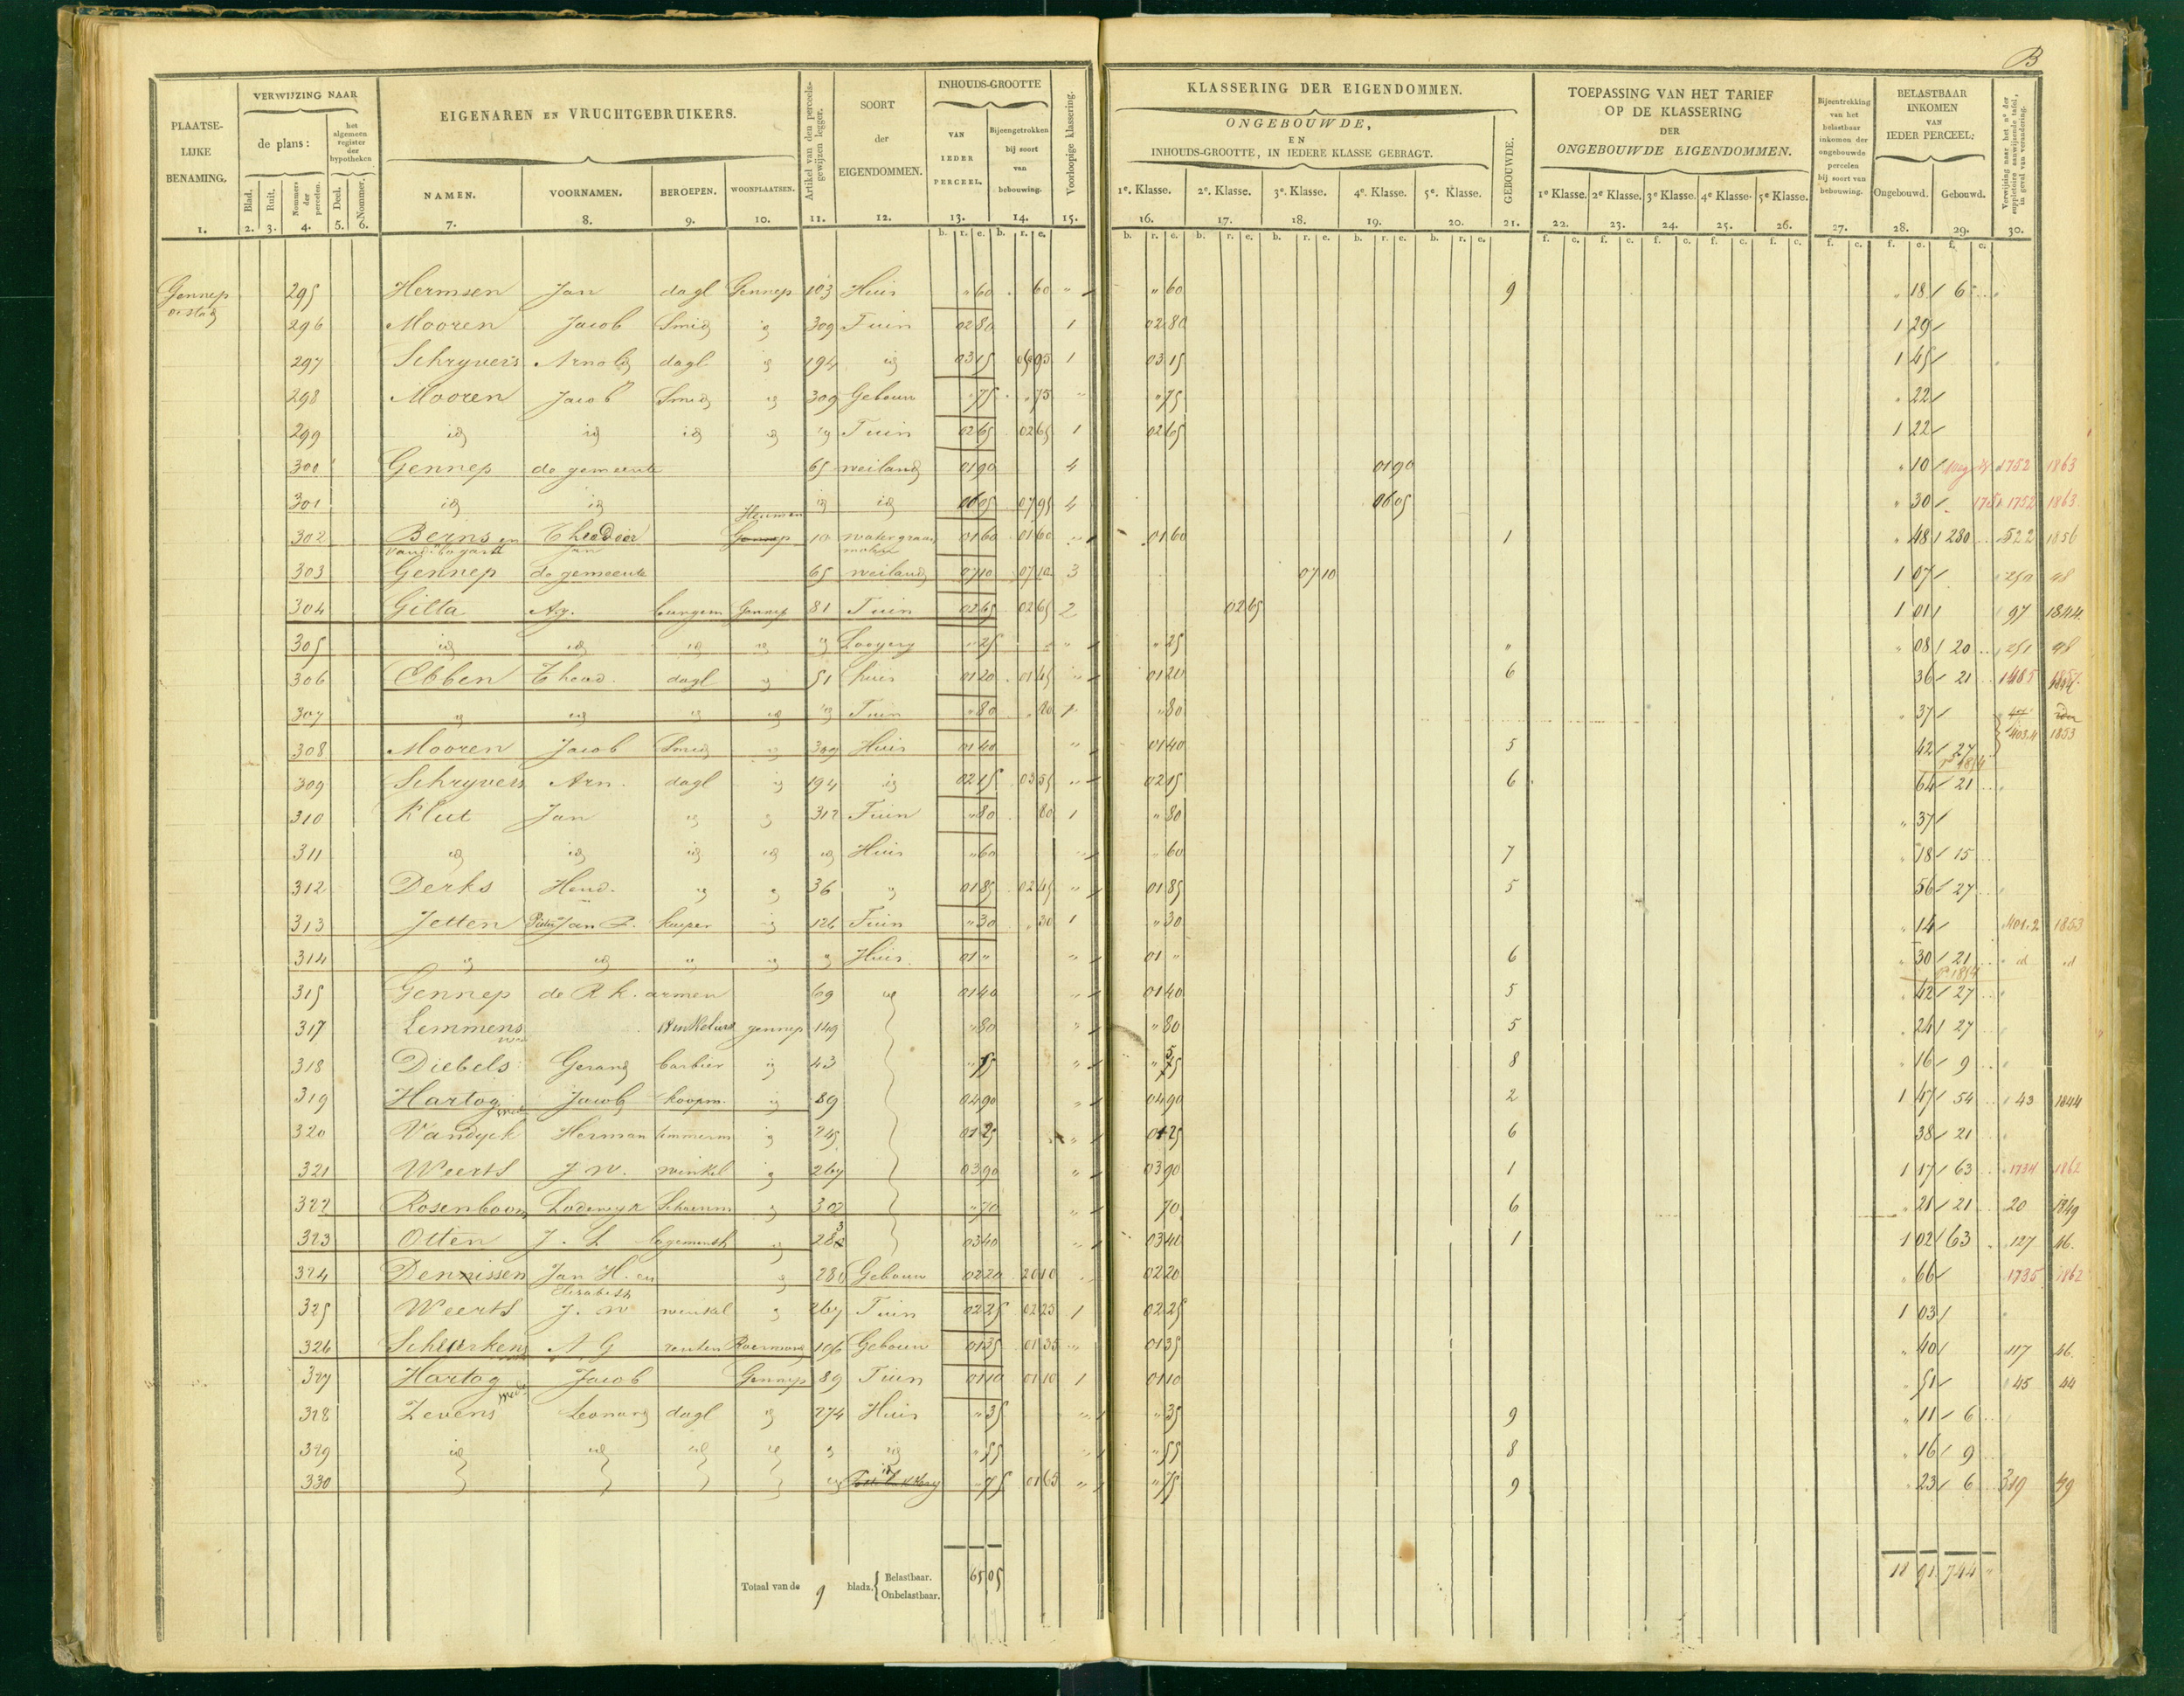 B
PLAATSELIJKE BENAMING. 1.
VERWIJZING NAAR
de plans:
Blad. 2. Ruit. 3. Nommers der perceelen. 4.
het algemeen register der hypotheken
Deel. 5. Nommer. 6.
EIGENAREN EN VRUCHTGEBRUIKERS.
NAMEN. 7. VOORNAMEN. 8. BEROEPEN. 9. WOONPLAATSEN. 10.
Artikel van den perceelsgewijzen legger. 11.
SOORT der EIGENDOMMEN. 12.
INHOUDS-GROOTTE
VAN IEDER PERCEEL. 13. Bijeengetrokken bij soort van bebouwing. 14.
Voorloopige klassering. 15.
KLASSERING DER EIGENDOMMEN.
ONGEBOUWDE,
EN
INHOUDS-GROOTTE, IN IEDERE KLASSE GEBRAGT.
1e. Klasse. 16. 2e. Klasse. 17. 3e. Klasse. 18. 4e. Klasse. 19. 5e. Klasse. 20.
GEBOUWDE. 21.
TOEPASSING VAN HET TARIEF
OP DE KLASSERING
DER
ONGEBOUWDE EIGENDOMMEN.
1e Klasse. 22. 2e Klasse. 23. 3e Klasse. 24. 4e Klasse. 25. 5e Klasse. 26.
Bijeentrekking van het belastbaar inkomen der ongebouwde perceelen bij soort van bebouwing. 27.
BELASTBAAR INKOMEN VAN IEDER PERCEEL:
Ongebouwd. 28. Gebouwd. 29.
Verwijzing naar het no. der suppletoire aanwijzende tafel, in geval van verandering. 30.
Gennep 295 Hermsen Jan dagl Gennep 103 Huis " 60 60 " " 60 9 " 18 6
296 Mooren Jacob Smid id 309 Tuin 02 80 1 02 80 1 29
297 Schryvers Arnold dagl id 194 id 03 15 1 03 15 1 45
298 Mooren Jacob Smid id 309 Gebouw " 75 " 75 " " 75 " 22
299 id id id id id Tuin 02 65 02 65 1 02 65 1 22
300 Gennep de gemeente 65 weiland 01 90 4 01 90 " 10 1752 1863
301 id id id id 06 05 07 95 4 06 05 " 30 1752 1863
Heumen
302 Berns en Theodoor Gennep 10 watergraan 01 60 01 60 " 01 60 1 " 48 280 522 1856
Jan molen
303 Gennep de gemeente 65 weiland 07 10 07 10 3 07 10 1 07 250 48
304 Gilta burgem Gennep 81 Tuin 02 65 02 65 2 02 65 1 01 97 1844
305 id id id id id Looyery " 25 " " 25 " " 08 20 251 48
306 Ebben Theod. dagl id 51 huis 01 20 01 45 " 01 20 6 36 21 1485
307 id id id id id Tuin " 80 80 1 " 80 " 37
308 Mooren Jacob Smid id 309 Huis 01 40 " 01 40 5 42 27 1853
309 Schryvers Arn. dagl id 194 id 02 15 03 55 " 02 15 6 64 21
310 Klut Jan id id 312 Tuin " 80 80 1 " 80 " 37
311 id id id id id Huis " 60 " " 60 7 " 18 15
312 Derks Hend. id id 36 id 01 85 02 45 " 01 85 5 56 27
313 Jetten Pieter Jan kuiper id 126 Tuin " 30 " 30 1 " 30 " 14 1853
314 id id id id id Huis. 01 " " 01 " 6 " 30 21 id id
315 Gennep de R k. armen 69 id 01 40 " 01 40 5 " 42 27
317 Lemmens gennep 149 " 80 " " 80 5 " 24 27
318 Diebels Gerard barbier id 43 " " 8 " 16 9
319 Hartog Jacob koopm. id 89 04 90 " 04 90 2 1 47 54 43 1844
320 Vandyck Herman timmerm id 245 01 25 " 01 25 6 38 21
321 Weerts J. W. winkel id 267 03 90 " 03 90 1 1 17 63 1734 1862
322 Rosenboom Lodewyk id 302 " 70 " 70 6 " 21 21 20 1849
323 Otten J. L id 03 40 " 03 40 1 1 02 63 127 46.
324 Dennissen Jan H. en id 280 Gebouw 02 20 20 10 02 20 " 66 1735 1862
Elisabeth
325 Weerts J. W winkel id 267 Tuin 02 25 02 25 1 02 25 1 03
326 A G renten Roermond Gebouw 01 35 01 35 " 01 35 " 40 117 46.
327 Hartog Jacob Gennep 89 Tuin 01 10 01 10 1 01 10 51 45 44
328 Zevens Leonard dagl id 274 Huis " 35 " " 35 9 " 11 6
329 id id id id id id " 55 " " 55 8 " 16 9
330 " 75 01 65 " " 75 9 23 6 319 49
Totaal van de 9 bladz. Belastbaar. 65 05 18 91 744 "
Onbelastbaar.